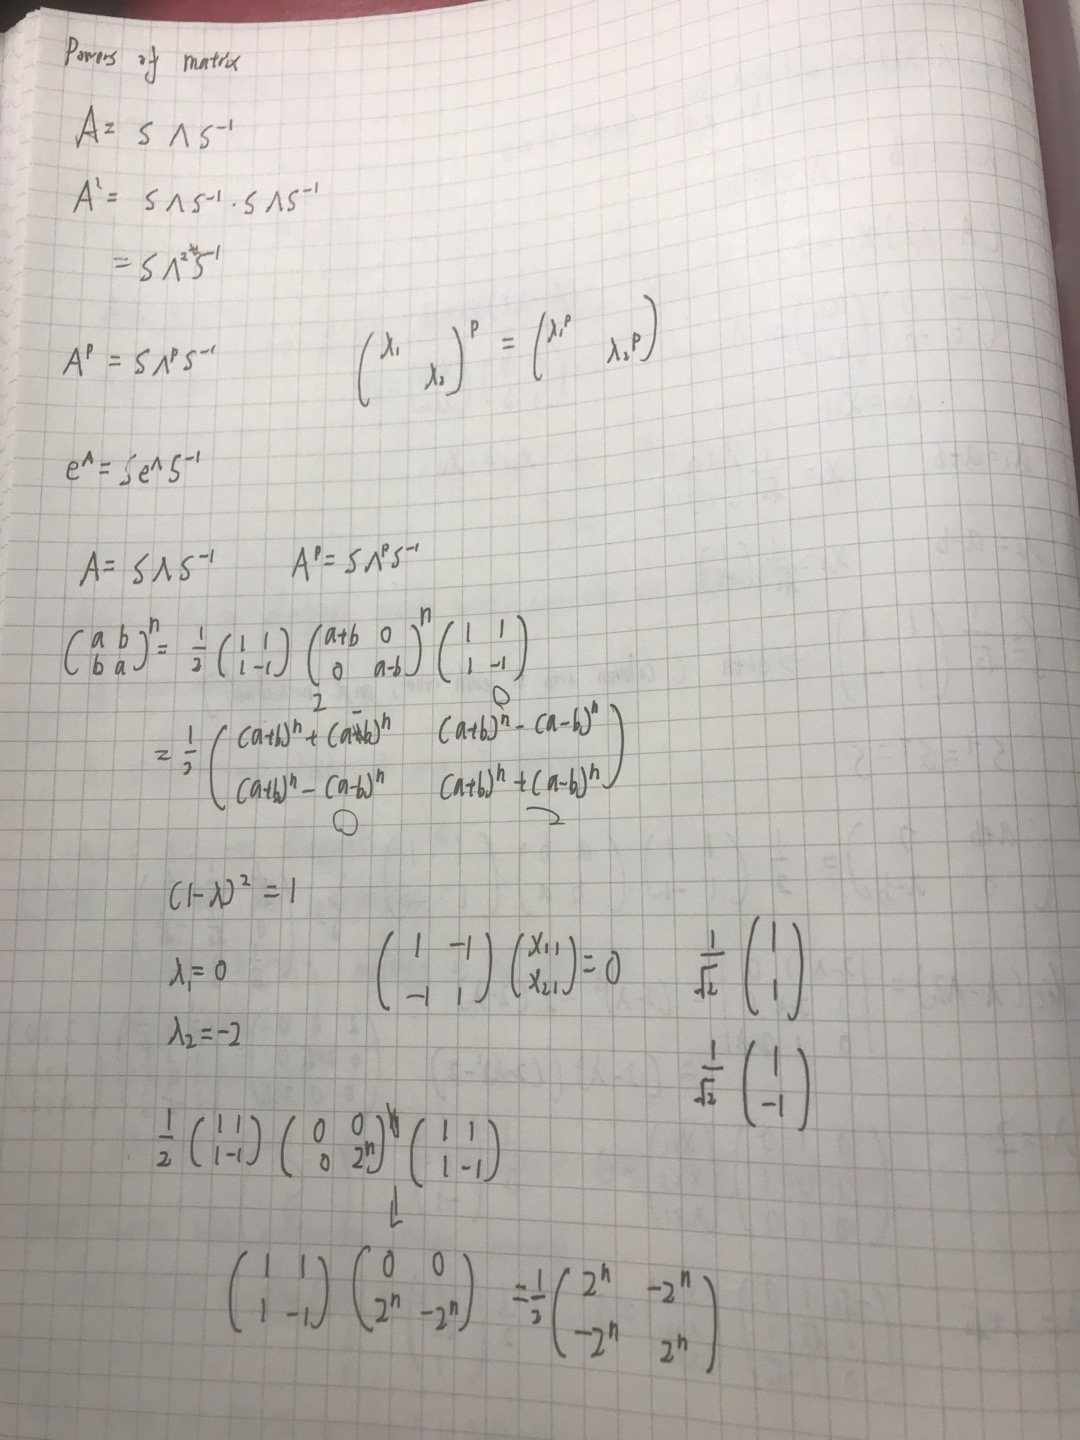 Powers of matrix
A = S Λ S⁻¹
A² = S Λ S⁻¹ · S Λ S⁻¹
= S Λ² S⁻¹
Aᵖ = S Λᵖ S⁻¹ (λ₁ λ₂)ᵖ = (λ₁ᵖ λ₂ᵖ)
e^A = S e^Λ S⁻¹
A = S Λ S⁻¹ Aᵖ = S Λᵖ S⁻¹
(a b; b a)ⁿ = 1/2 (1 1; 1 -1) (a+b 0; 0 a-b)ⁿ (1 1; 1 -1)
2 0
= 1/2 ((a+b)ⁿ + (a-b)ⁿ (a+b)ⁿ - (a-b)ⁿ
(a+b)ⁿ - (a-b)ⁿ (a+b)ⁿ + (a-b)ⁿ)
0 2
(1-λ)² = 1
λ₁ = 0 (1 -1; -1 1) (x₁₁; x₂₁) = 0 1/√2 (1; 1)
λ₂ = -2 1/√2 (1; -1)
1/2 (1 1; 1 -1) (0 0; 0 2ⁿ) (1 1; 1 -1)
(1 1; 1 -1) (0 0; 2ⁿ -2ⁿ) = 1/2 (2ⁿ -2ⁿ; -2ⁿ 2ⁿ)